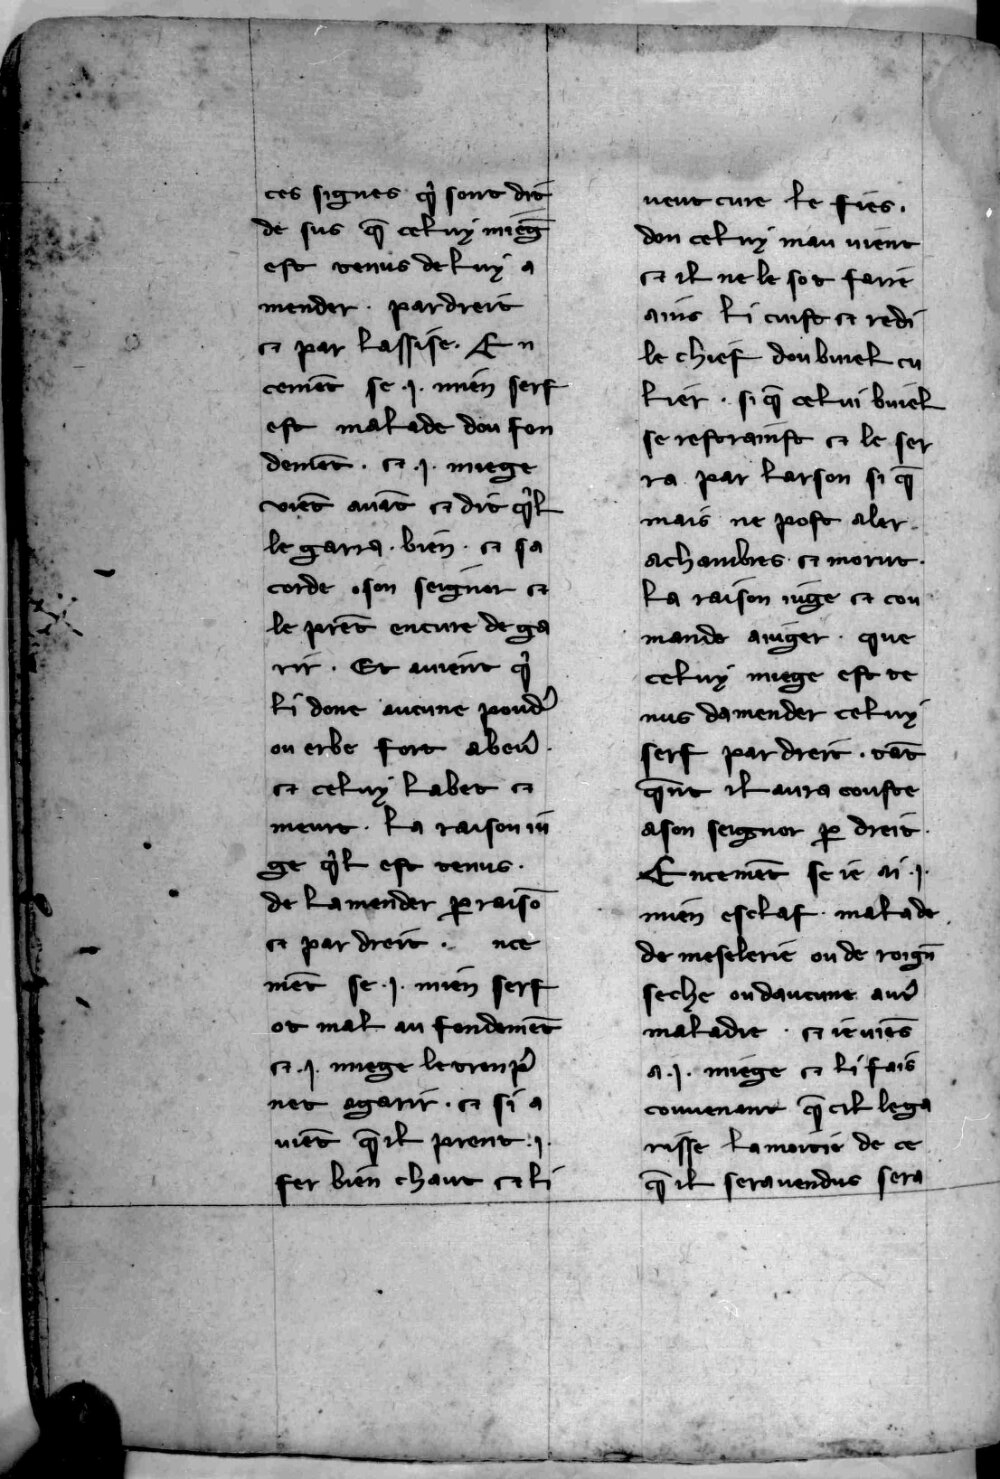 ces signes q̉ sont dit
de sus q̄ celuy mieḡ
est tenus de luy a
mender · par dreit
⁊ par lassise · En
cemēt se ·j· mien serf
est malade dou fon
demēt · ⁊ ·j· miege
viēt auāt ⁊ dit q̉l
le garra · bien · ⁊ sa
corde · son seignor ⁊
le prēt encure de ga
rir · Et auient q̉
li done aucune poud̉
ou erbe fort abeủ ·
⁊ celuy labet ⁊
meurt · la raison iu
ge q̉l est tenus ·
de lamender ꝑ raisō
⁊ par dreit · nce
mēt se ·j· mien serf
ot mal au fondemēt
⁊ ·j· miege le trenp̉
net agarir · ⁊ si a
uiēt q̄ il prent ·j·
fer bien chaut ⁊ li
veut cure le fies ·
don celuy mau vient
⁊ il ne le sot faire
ains li cuist ⁊ redi
le chief dou buiel cu
lier · si q̄ celui buiel
se restrainst ⁊ le ser
ra par larson si q̄
mais ne post aler
achambres ⁊ morut ·
la raison iuge ⁊ cou
mande aiuger · que
celuy miege est te
nus damender celuy
serf par dreit · tāt
q̄nt il aura couste
ason seignor ꝑ dreit ·
Encemēt se ie ai ·j·
mien esclaf · malade
de meselerie ou de roign̄
seche ou daucune aut̉
maladie · ⁊ ie viēs
a ·j· miege ⁊ li fais
couvenant q̄ cil le ga
risse la moitie de ce
q̄ il sera vendus sera